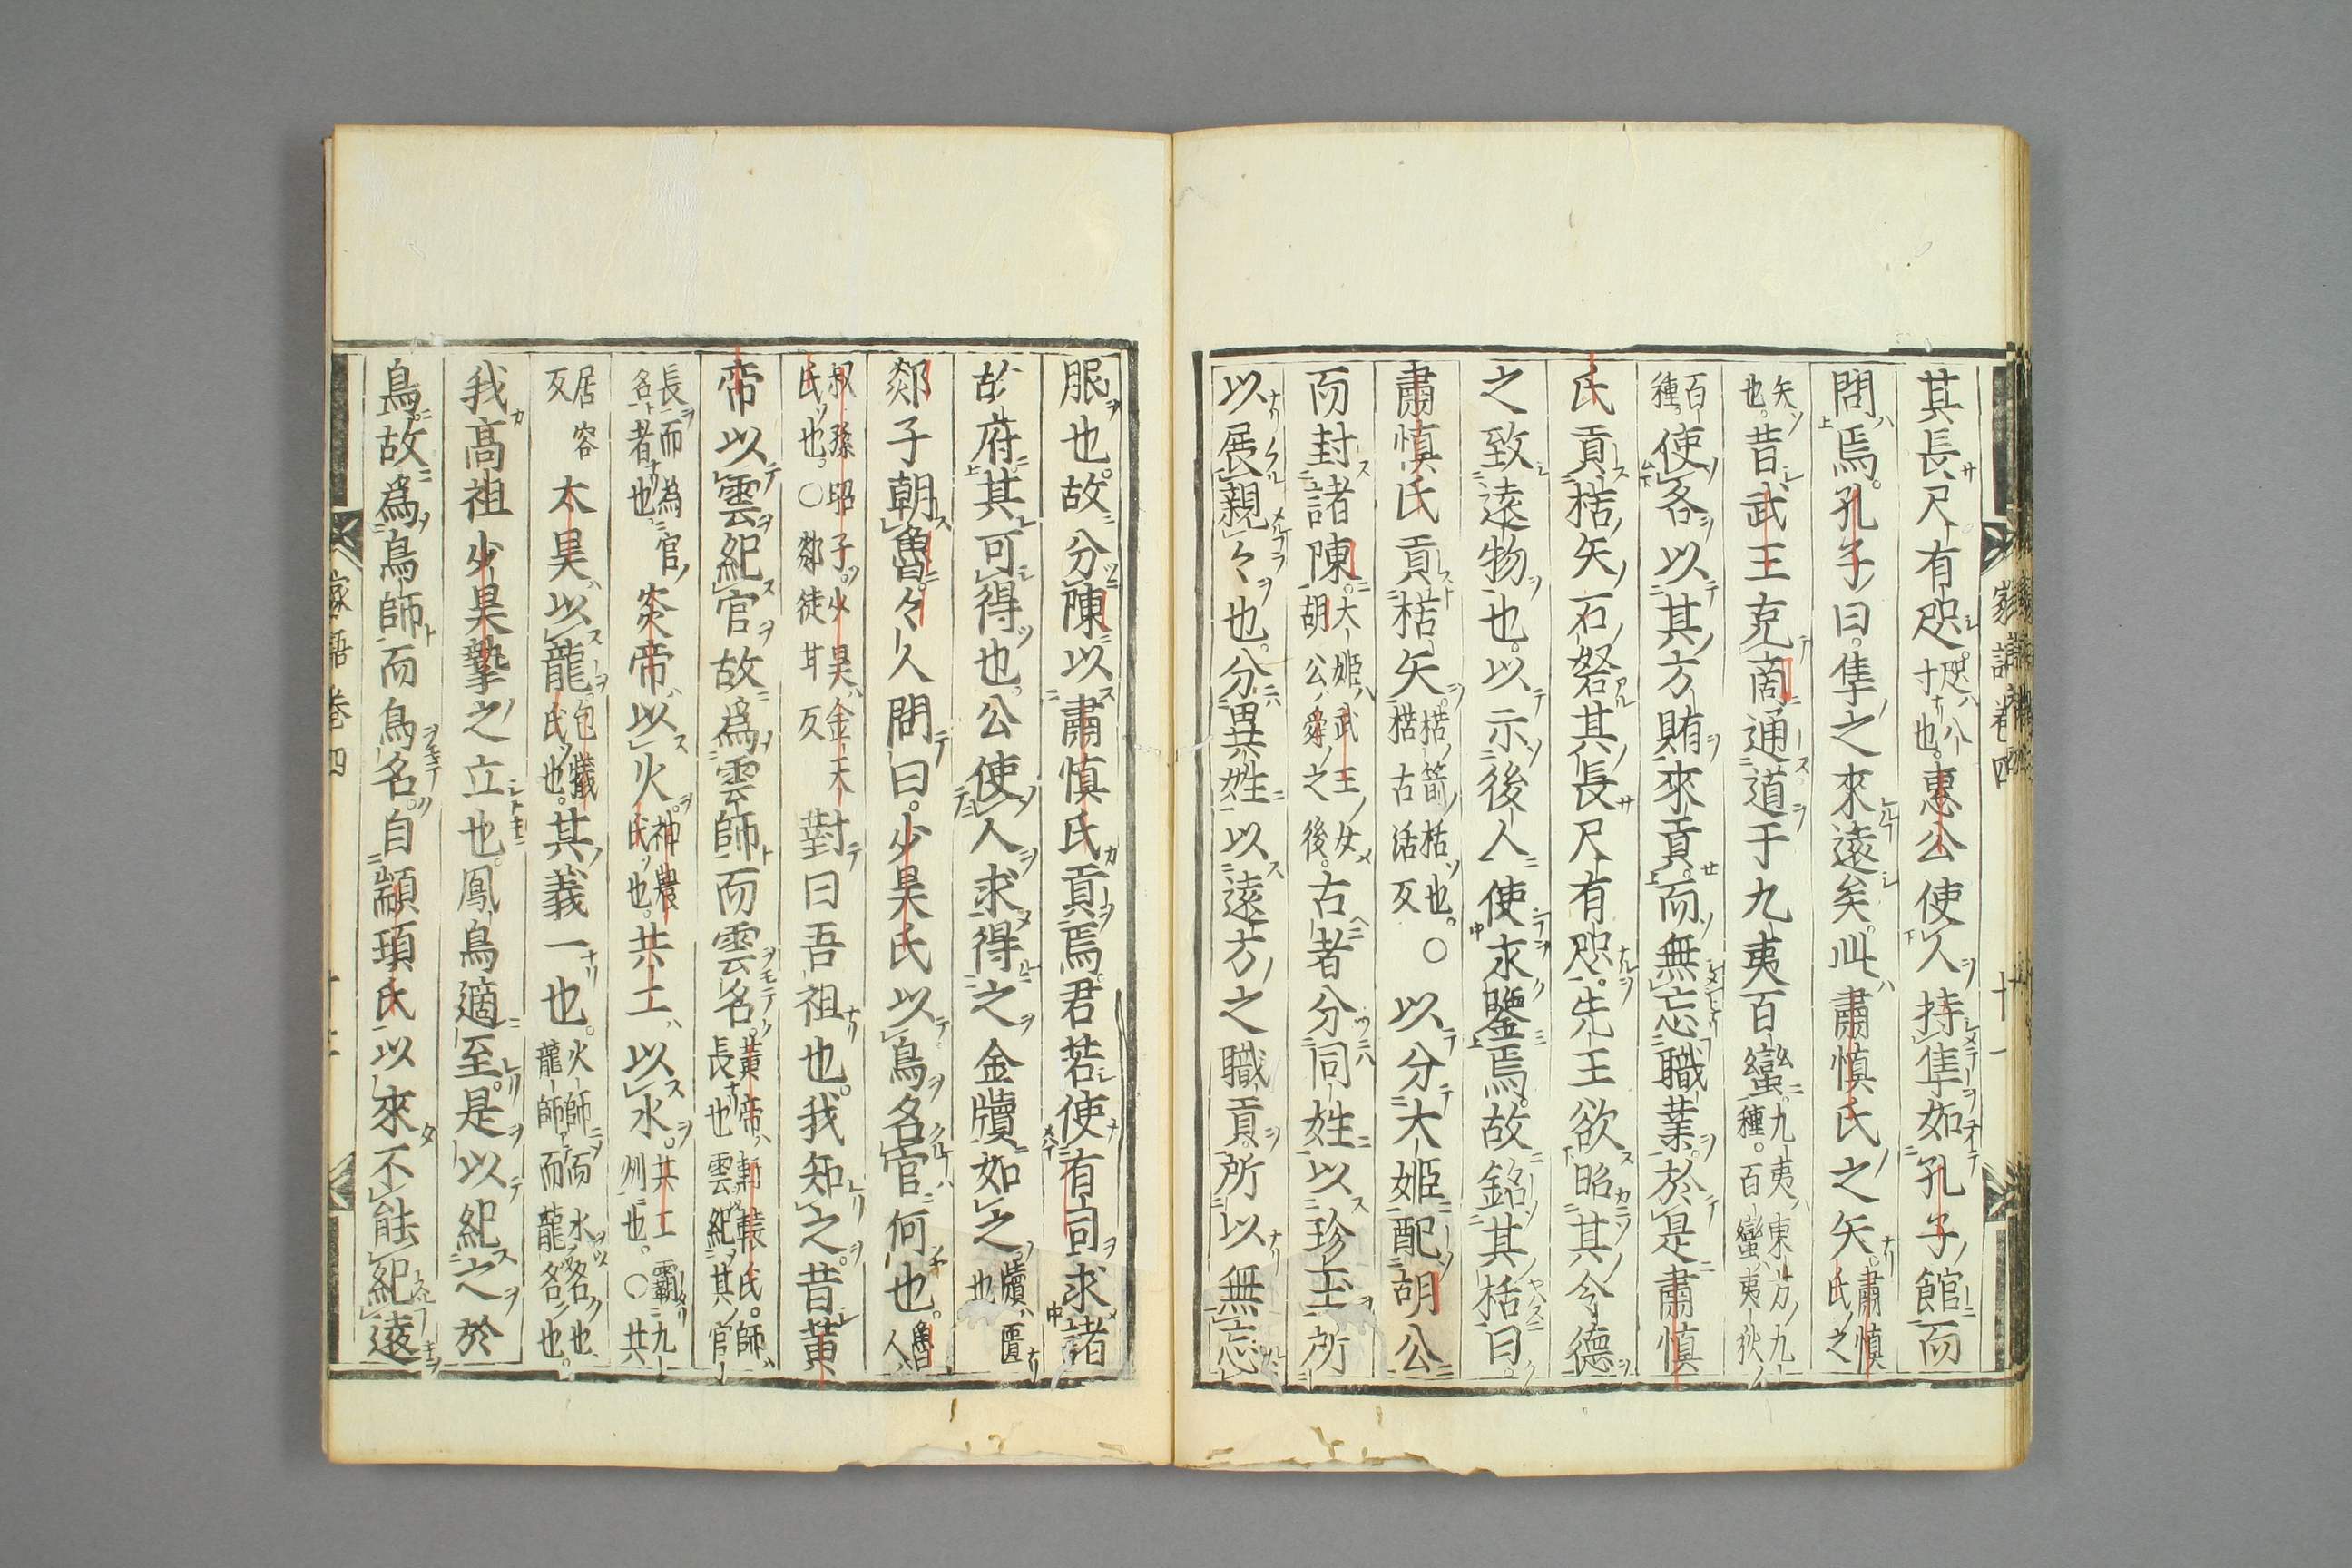 其長尺有咫。咫八寸也。惠公使人持隼如孔子館而
問焉。孔子曰。隼之來遠矣。此肅慎氏之矢。肅慎氏之
矢也。昔武王克商通道于九夷百蠻九夷東方九種。百蠻夷狄
百種。使各以其方賄來貢。而無忘職業於是肅慎
氏貢楛矢石砮其長尺有咫。先王欲昭其令德
之致遠物也。以示後人使永鑒焉。故銘其栝曰。
肅慎氏貢楛矢。楛箭栝也。楛古活反。○以分大姬配胡公
而封諸陳。大姬武王女胡公舜之後。古者分同姓以珍玉所
以展親々也。分異姓以遠方之職貢所以無忘
家語卷四
十一
服也。故分陳以肅慎氏貢焉。君若使有司求諸
故府其可得也。公使人求得之金牘如之牘匱也
郯子朝魯。々人問曰。少昊氏以鳥名官何也。魯人
叔孫昭子少昊金天氏也。○郯徒甘反對曰吾祖也。我知之。昔黃
帝以雲紀官故爲雲師而雲名。黃帝軒轅氏。師長也雲紀其官
長而為官名者也。炎帝以火。神農氏也。共工以水。共工霸九州也。○共
居容反太昊以龍。包犧氏也。其義一也。火師而水名也龍師而龍名也。
我高祖少昊摯之立也。鳳鳥適至。是以紀之於
鳥。故爲鳥師而鳥名。自顓頊氏以來不能紀遠
家語卷四